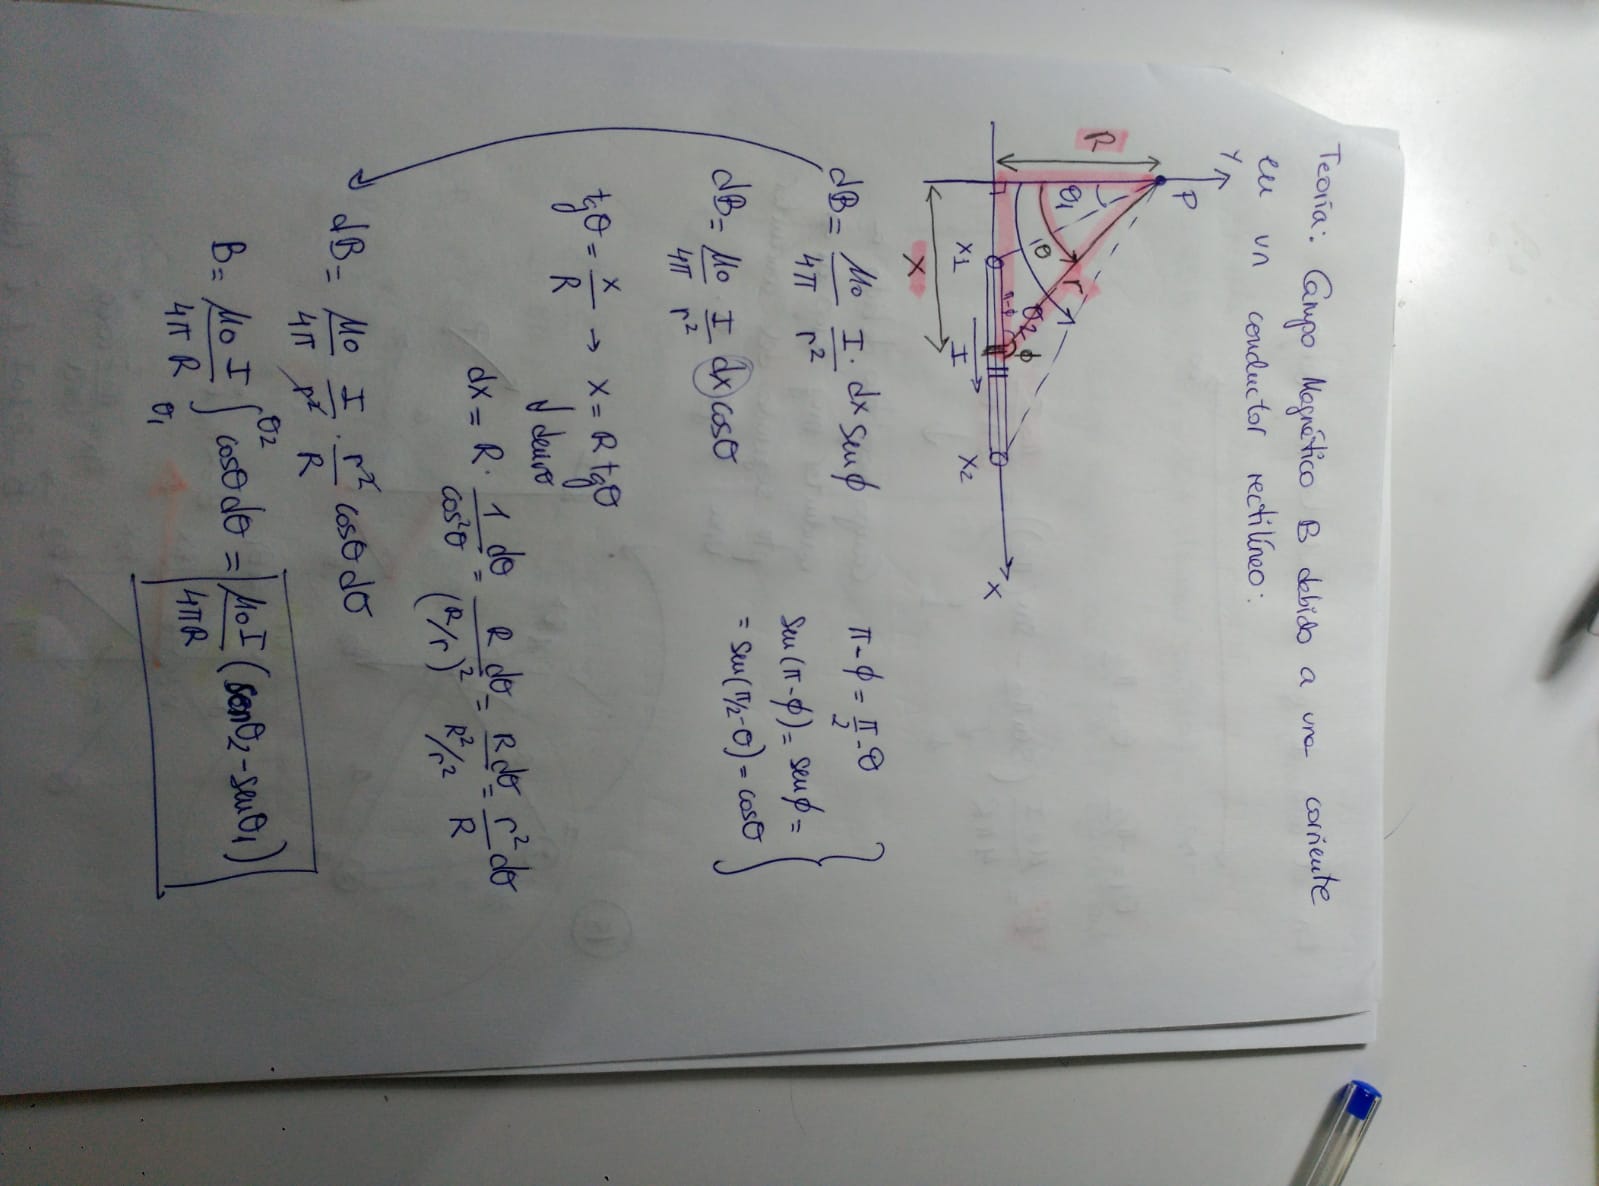 Teoría: Campo Magnético B debido a una corriente
en un conductor rectilíneo:
y
P
R
θ1
θ
r
θ2
π-φ
φ
x1
I
x2
x
X
dB = μ0/4π I/r² · dx senφ
π-φ = π/2 - θ
sen(π-φ) = senφ =
= sen(π/2-θ) = cosθ
dB = μ0/4π · I/r² dx cosθ
tgθ = x/R → x = R tgθ
↓ derivo
dx = R · 1/cos²θ dθ = R/(R/r)² dθ = R dθ/R²/r² = r²/R dθ
dB = μ0/4π I/r² · r²/R cosθ dθ
B = μ0 I/4π R ∫θ1^θ2 cosθ dθ = μ0 I/4πR (senθ2 - senθ1)